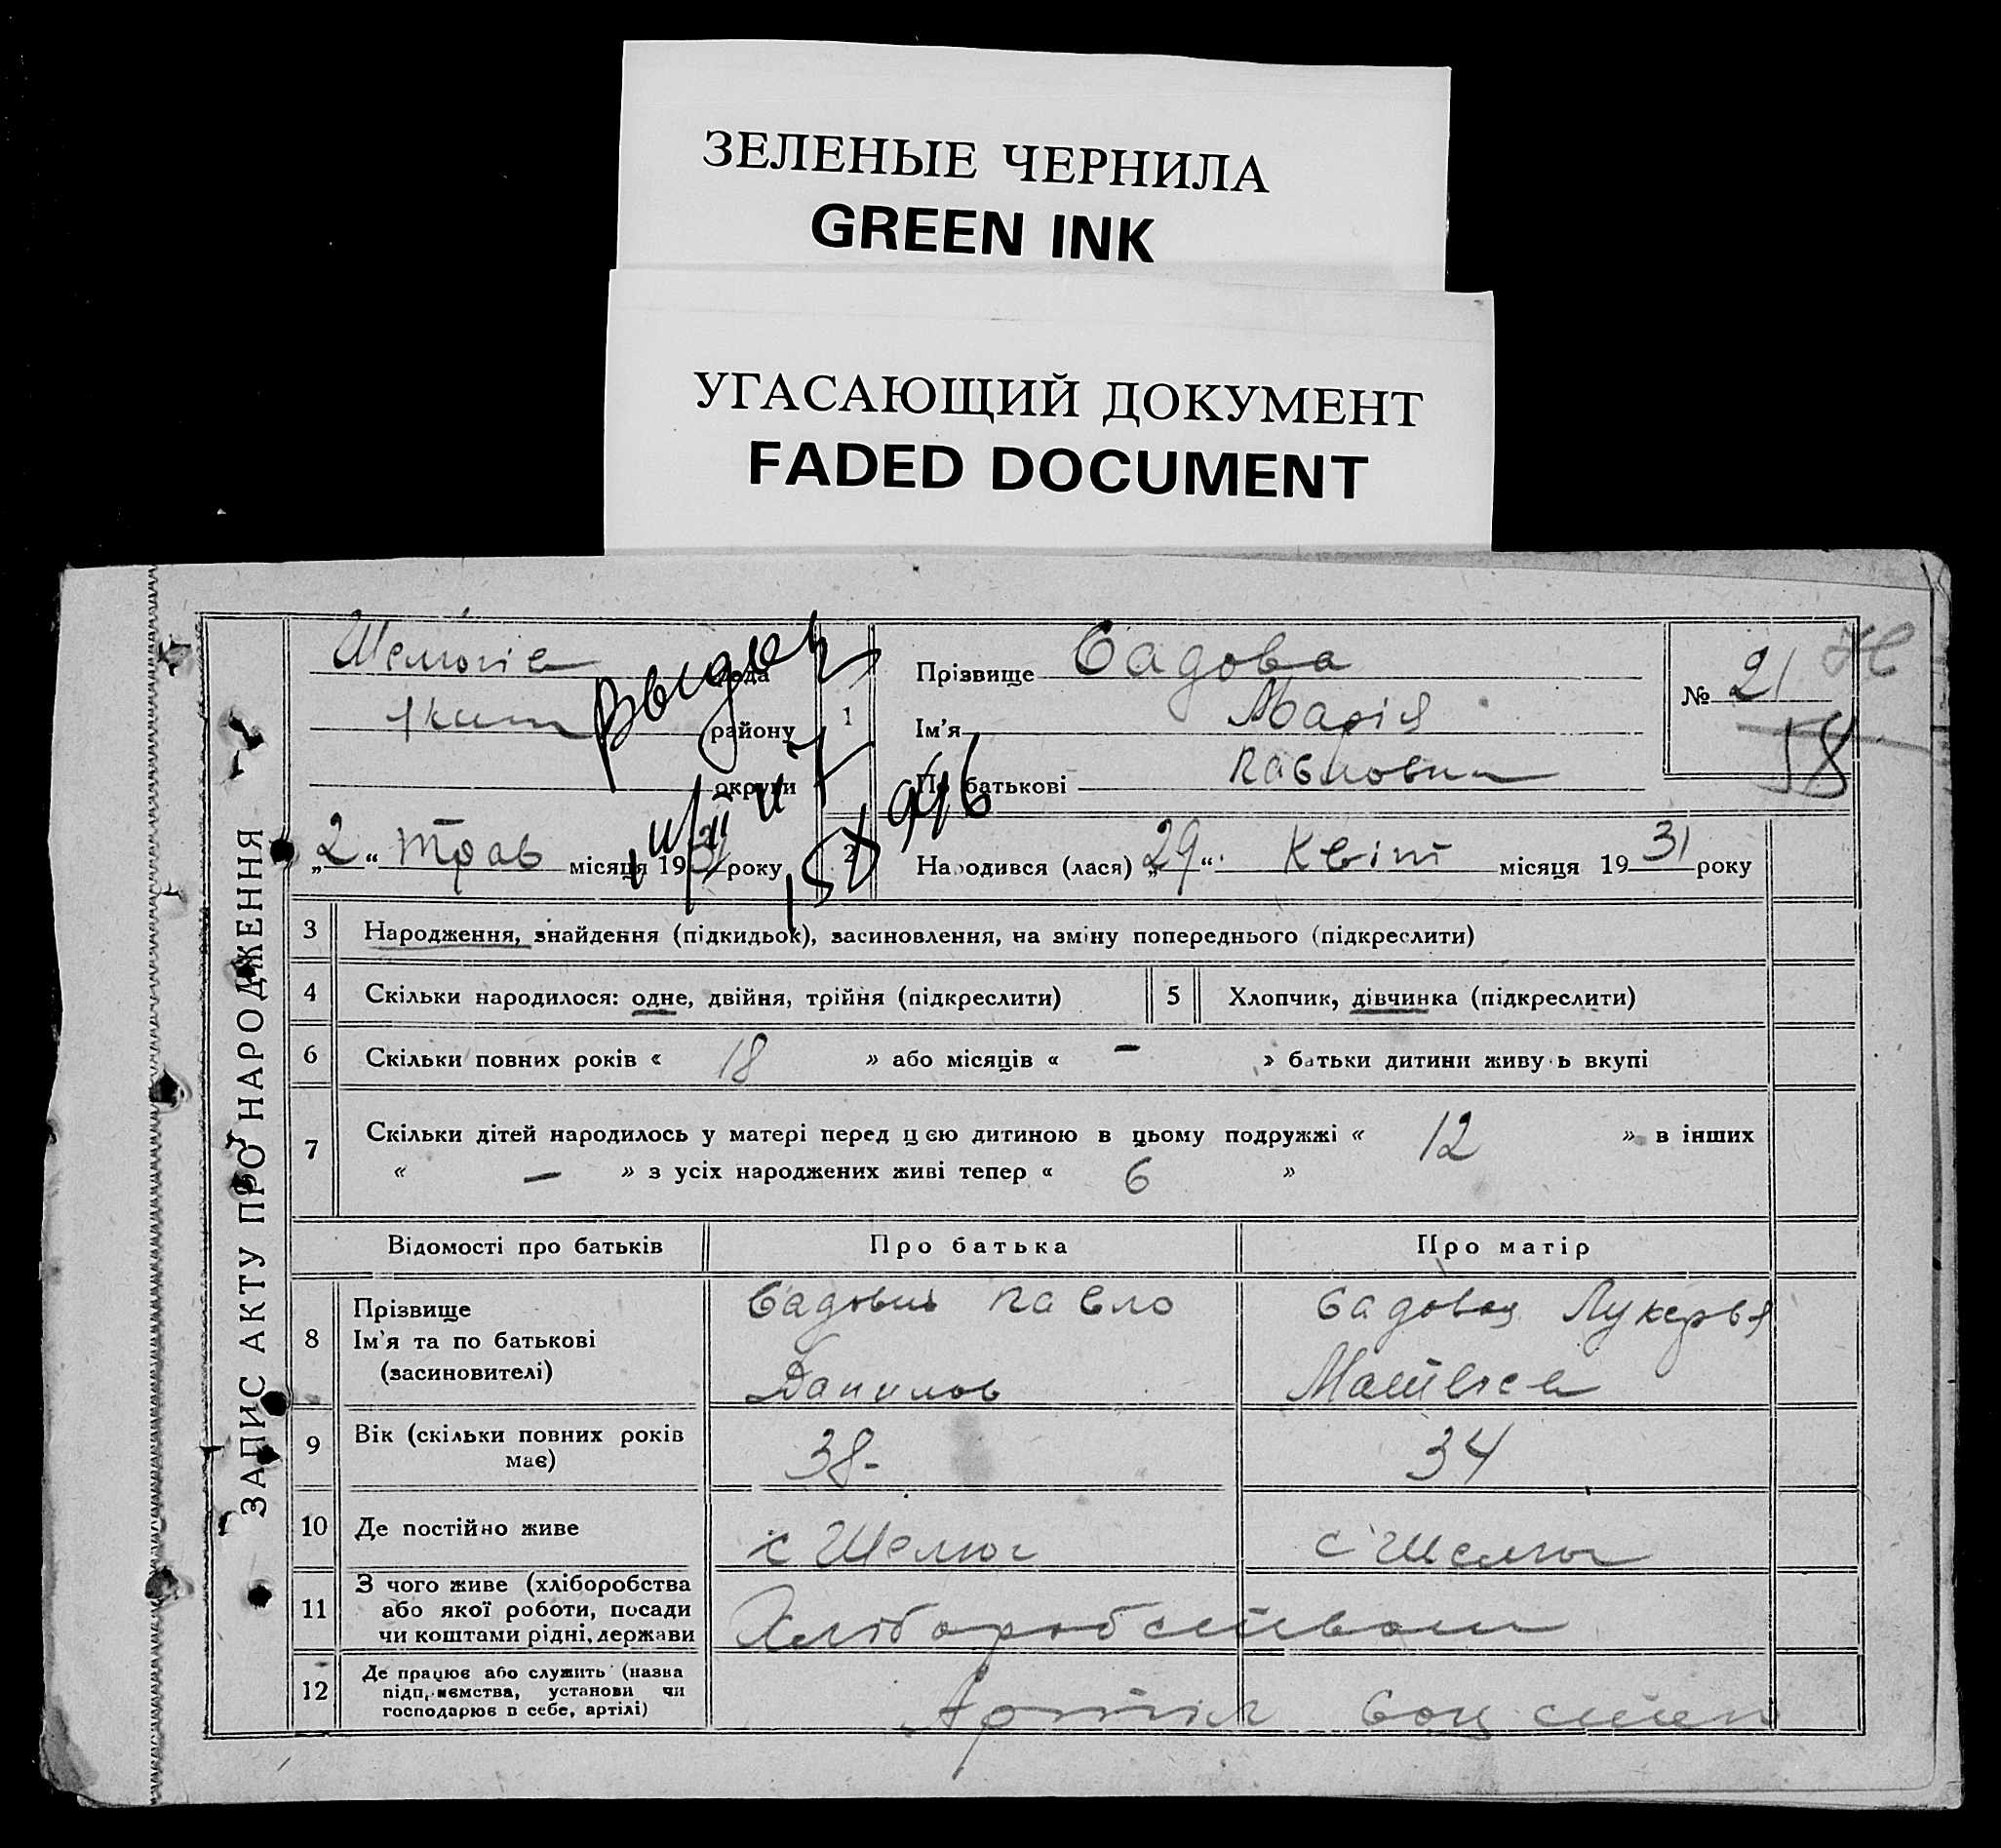 ЗЕЛЕНЫЕ ЧЕРНИЛА
GREEN INK
УГАСАЮЩИЙ ДОКУМЕНТ
FADED DOCUMENT
ЗАПИС АКТУ ПРО НАРОДЖЕННЯ
рада
району
округи
„2“ трав місяця 1931 року
1
Прізвище Садова
Ім'я Марія
По батькові Павловна
№ 21
58
2
Народився (лася) „29“ Квіт місяця 1931 року
3 Народження, знайдення (підкидьок), засиновлення, на зміну попереднього (підкреслити)
4 Скільки народилося: одне, двійня, трійня (підкреслити)
5 Хлопчик, дівчинка (підкреслити)
6 Скільки повних років « 18 » або місяців « — » батьки дитини живуть вкупі
7 Скільки дітей народилось у матері перед цією дитиною в цьому подружжі « 12 » в інших
« — » з усіх народжених живі тепер « 6 »
Відомості про батьків Про батька Про матір
8 Прізвище
Ім'я та по батькові
(засиновителі)
Садовий Павло
Данилов
Садовая Лукерья
Матвеев
9 Вік (скільки повних років
має)
38- 34
10 Де постійно живе с Шелюг с Шелюг
11 З чого живе (хліборобства
або якої роботи, посади
чи коштами рідні, держави
Хліборобством
12 Де працює або служить (назва
підприємства, установи чи
господарює в себе, артілі)
Артіл Соц степ